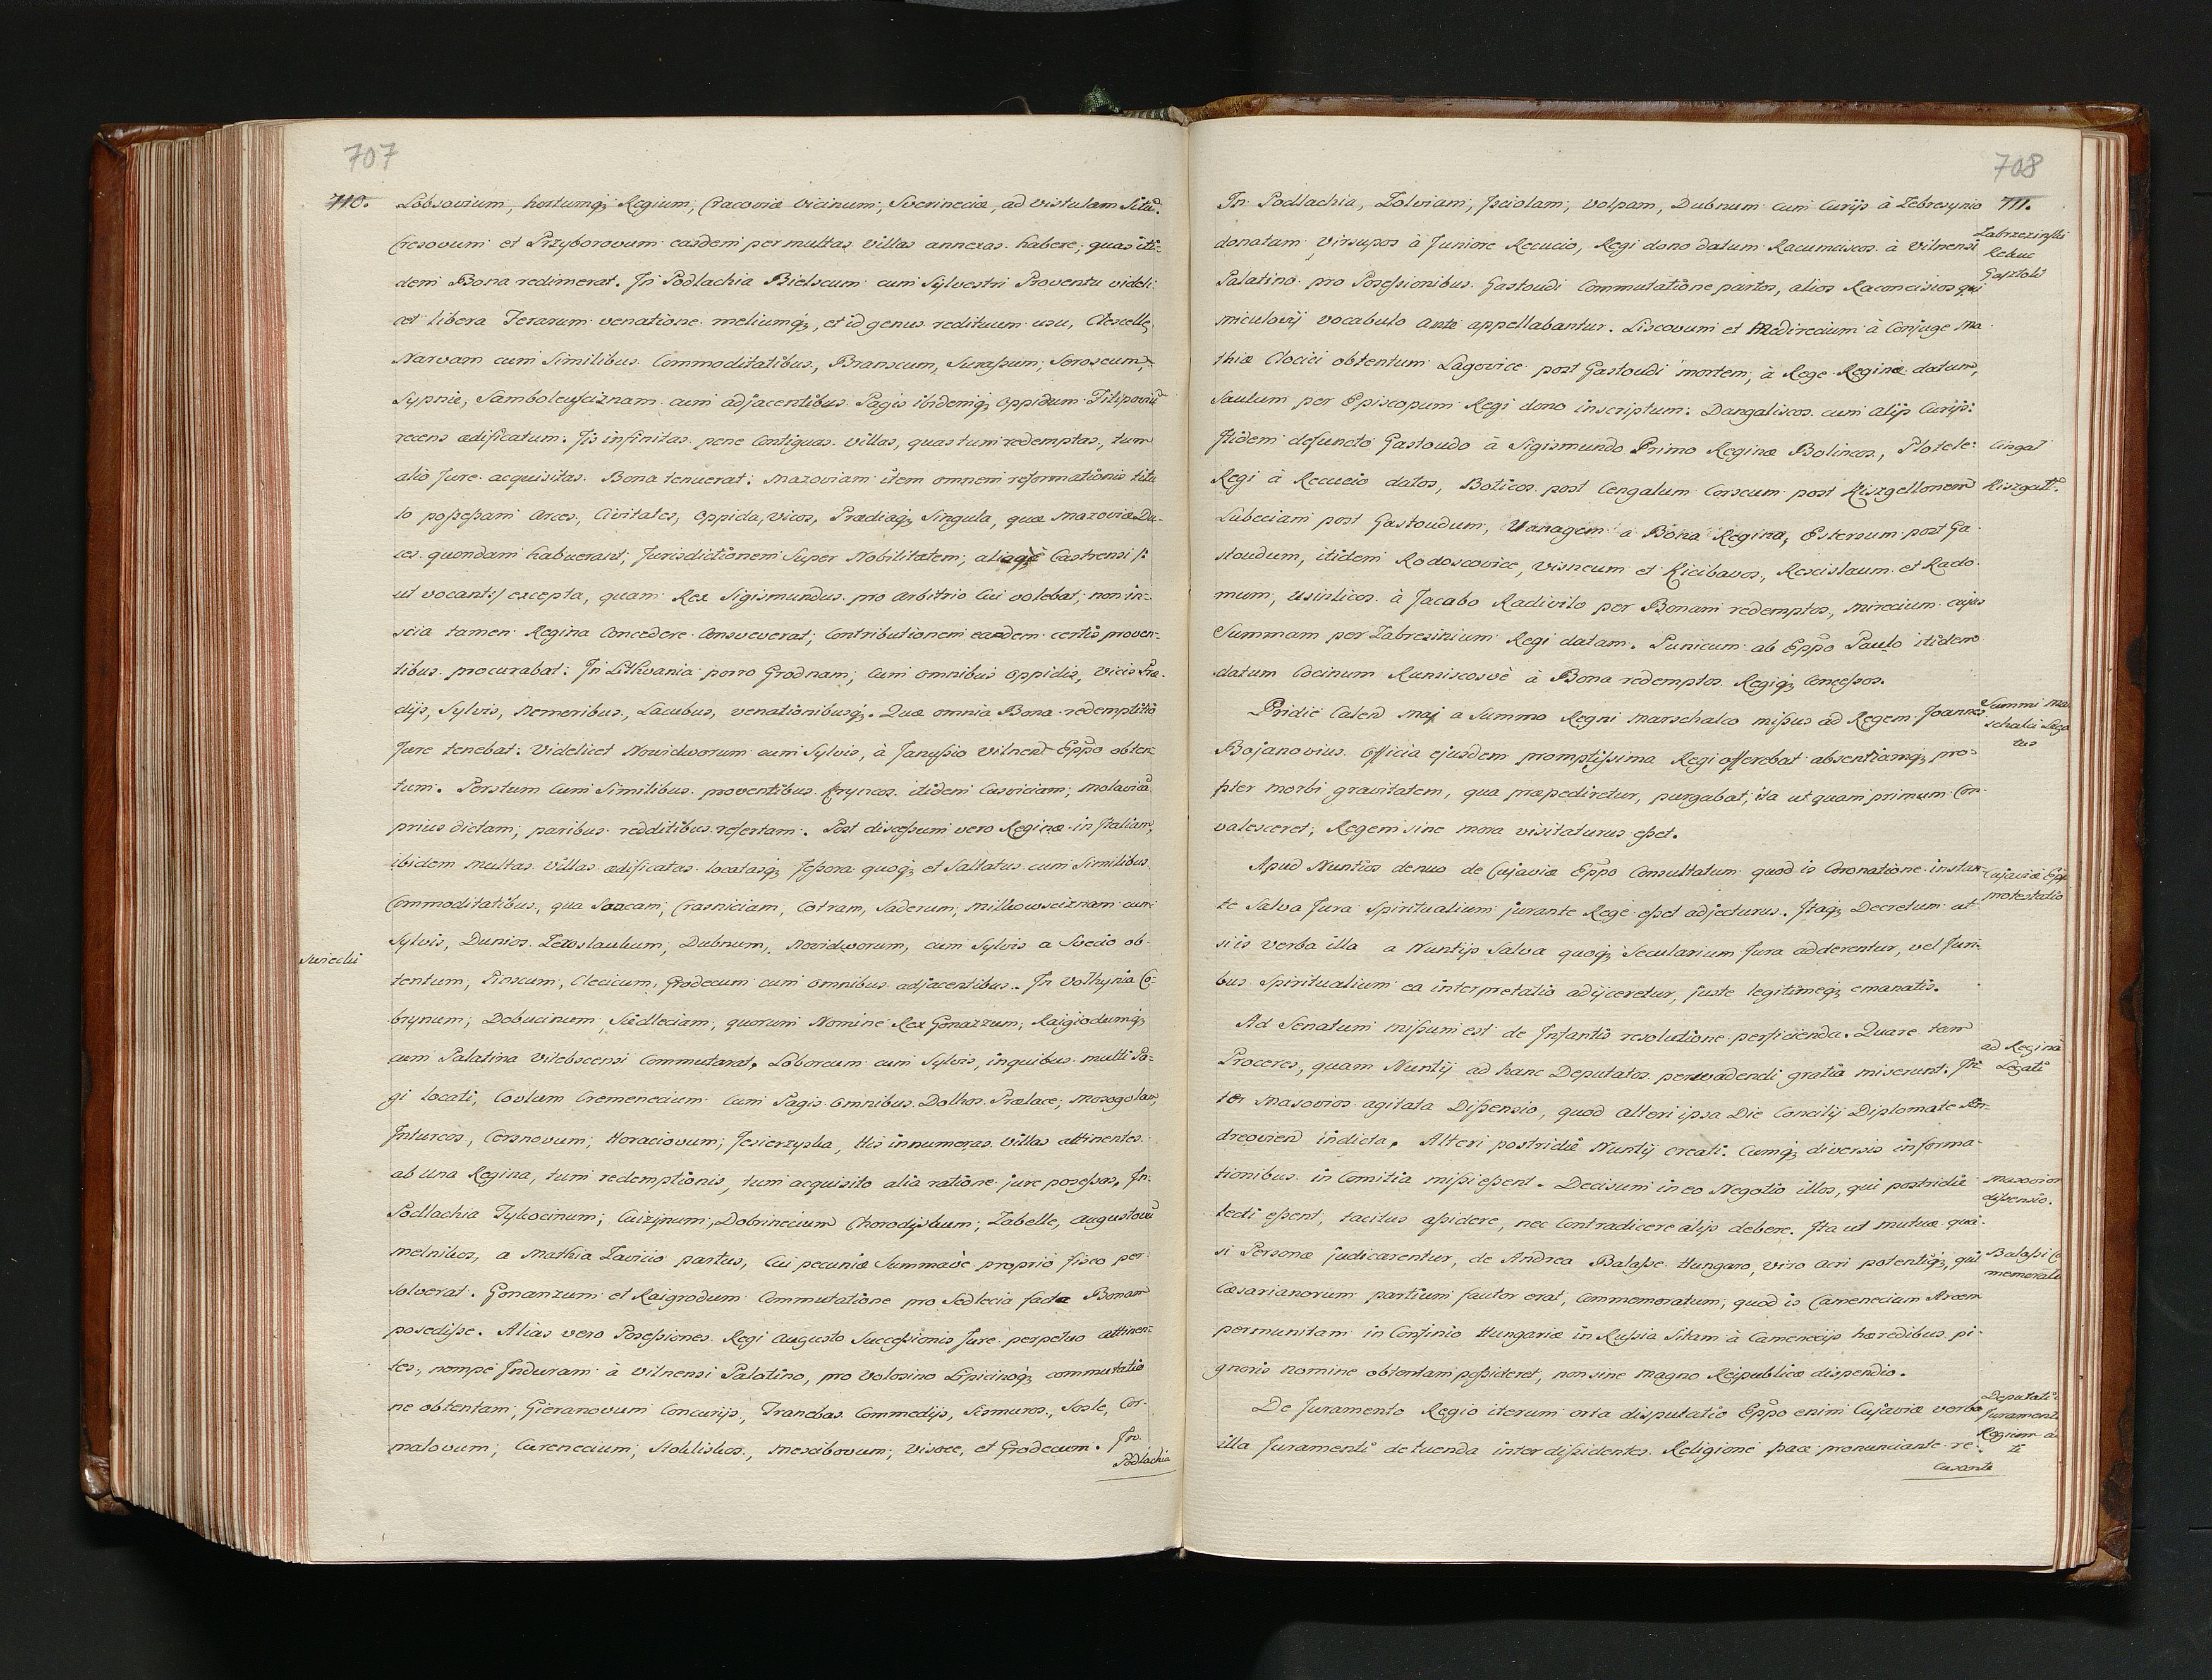 707
710.
Lobsovium, hortumq; Regium, Cracoviæ vicinum, Sverineciæ, ad Vistulam Sitū.
Cresovum et Przyborovum easdem permultas villas annexas habere; quas iti=
dem Bona redimerat. In Podlachia Bielscum cum Sylvestri Proventu videli=
cet libera Ferarum venatione meliumq;, et id genus redituum usu, Clescelle,
Narvam cum Similibus Commoditatibus, Branscum, Suraßum, Soroscum,
Sypnie, Samboleusciznam cum adjacentibus Pagis ibidemq; oppidum Filipoviū
recens ædificatum. Jis infinitas pene Contiguas villas, quas tum redemptas, tum
alio Jure acquisitas Bona tenuerat. Mazoviam item omnem reformationis titu
lo poßeßam Arces, Civitates, oppida, vicos, Prædiaq; Singula, quæ Mazoviæ Du-
ces quondam habuerant; Jurisdictionem Super Nobilitatem, aliaqè Castrensi /:
ut vocant:/ excepta, quam Rex Sigismundus pro arbitrio Cui volebat; non in=
scia tamen Regina Concedere Consveverat; Contributionem eandem certis proven=
tibus procurabat. In Lithvania porro Grodnam, Cum omnibus oppidis, vicis Præ-
dijs, Sylvis, Nemoribus, Lacubus, venationibusq;. Quæ omnia Bona redemptitio
Jure tenebat. Videlicet Nowidworum cum Sylvis, à Janußio Vilnens Eppo obten=
tum. Perstum Cum Similibus proventibus Kryncos itidem Casviciam, Molavicā
prius dictam, paribus redditibus refertam. Post discessum vero Reginæ in Italiam,
ibidem multas villas ædificatas locatasq; Jeßora quoq; et Saltatus cum Similibus
Commoditatibus, qua Soxcam, Crasniciam, Cotram, Saderum, Milkowsciznam cum
Sylvis, Dunios Zeroslaukum, Dubnum, Novidworum, cum Sylvis a Svecio ob-
Swiecki
tentum, Pinscum, Clecicum, Grodecum cum omnibus adjacentibus. In Volhynia Co=
brynum, Dobucinum Siedleciam, quorum Nomine Rex Gonazzum, Raigrodumq;
cum Palatina Vitebscensi Commutarat. Loborcum cum Sylvis, in quibus multi Pa=
gi locati, Covlum Cremenecium Cum Pagis omnibus Dolhos Prælace, Mosogolam,
Inturcos, Corsnovum, Horaciovum, Jesierzyska, His innumeras villas attinentes
ab una Regina, tum redemptionis, tum acquisito alia ratione jure poseßas. In
Podlachia Tykocinum, Cuizynum, Dobrinecium Chorodyskum, Zabelle, Augustovū
Melnikos, a Mathia Laviuio partus, Cui pecuniæ Summavè proprio fisco per
solverat. Gonanzum et Raigrodum Commutatione pro Sedlecia facta Bonam
posediße. Alias vero Poseßiones Regi Augusto Succeßionis Jure perpetuo attinen=
tes, nempe Induram à Vilnensi Palatino, pro Volosino Lipicinoq; commutatio
ne obtentam, Gieranovum Concurijs, Tranebas Commedijs, Sismuros, Sosle, Cor-
matovum, Curenecium, Stoklishos, Mescibovum, Visoce, et Grodecum. In
Podlachia
708
711.
In Podlachia, Zolviam, Jsciolam, Volpam, Dubnum cum Curijs à Zebresynio
Zabrzezinski
donatam, Virsupos à Juniore Recucio, Regi dono datum Racumciscos à Vilnensi
Rekuc
Palatino pro Poseßionibus Gastoudi Commutatione partos, alios Raconcisios qui
Gasztold
Miculovij vocabulo ante appellabantur. Liscovum et Medirecium à Conjuge Ma-
thiæ Clociei obtentum Lagovice post Gastoudi mortem, à Rege Reginæ datum,
Sautum per Episcopum Regi dono inscriptum. Dangaliscos cum alijs Curijs.
Itidem defuncto Gastoudo à Sigismundo Primo Reginæ Bolincos, Plotele
Cingal
Regi à Recucio datos, Boticos post Cengalum Corscum post Kiszgellonem
Kiszgałł.
Lubeciam post Gastoudum, Uanagem a Bona Regina, Estersum post Ga
stoudum, itidem Rodoscovice, Visneum et Kicibavos, Rescislaum et Rado
mum, Usislicos à Jacabo Radivilo per Bonam redemptos, Mirecium cujus
Summam per Zabresinium Regi datam. Punicum ab Eppo Paulo itidem
datum Cocinum Rumiscosvè à Bona redemptos Regiq; Conceßos.
Pridie Calend Maj a Summo Regni Marschalco mißus ad Regem Joannes
Summi Mar
schalci Lega
tus
Bojanovius officia ejusdem promptißima Regi offerebat absentiamq; pro-
pter morbi gravitatem, qua præpediretur, purgabat, ita ut quam primum Con-
valesceret, Regem sine mora visitaturus eßet.
Apud Nuntios denuo de Cujaviæ Eppo Consultatum quod is Coronatione instan
Cujaviæ Epp
protestatio
te Salva Jura Spiritualium jurante Rege eßet adjecturus. Itaq; Decretum ut
si is verba illa a Nuntijs Salva quoq; Secularium Jura adderentur, vel Juri=
bus Spiritualium ea interpretatio adijceretur, juste legitimeq; emanatis.
Ad Senatum mißum est de Infantis resolutione perficienda. Quare tam
ad Reginā
Legati
Proceres, quam Nuntij ad hanc Deputatos persvadendi gratia miserunt. In
ter Masovios agitata Dißensio, quod alteri ipsa Die Concilij Diplomate An-
dreovien indicta. Alteri postridiè Nuntij creati. Cumq; diversis informa-
tionibus in Comitia mißi eßent. Decisum in eo Negotio illos, qui postridiè
Masovior
dißensio.
lecti eßent, tacitus aßidere, nec Contradicere alijs debere. Ita ut mutuæ qua-
si Personæ judicarentur, de Andrea Balaße Hungaro, viro acri potentiq;, qui
Balaßi Co
memoratio
Cæsarianorum partium fautor erat, Commemoratum, quod is Camenecium Arcem
permunitam in Confinio Hungariæ in Rußia Sitam à Camenecijs hæredibus pi-
gnoris nomine obtentam poßideret, non sine magno Reipublicæ dispendio.
De Juramento Regio iterum orta disputatio Eppo enim Cujaviæ verba
Deputati
Jurament
Regium
illa Juramenti de tuenda inter dißidentes Religione pace pronunciante re-
cusante